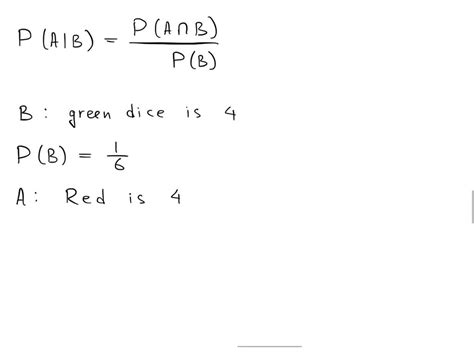 P (A|B) = P (A∩B) / P (B)
B: green dice is 4
P (B) = 1/6
A: Red is 4